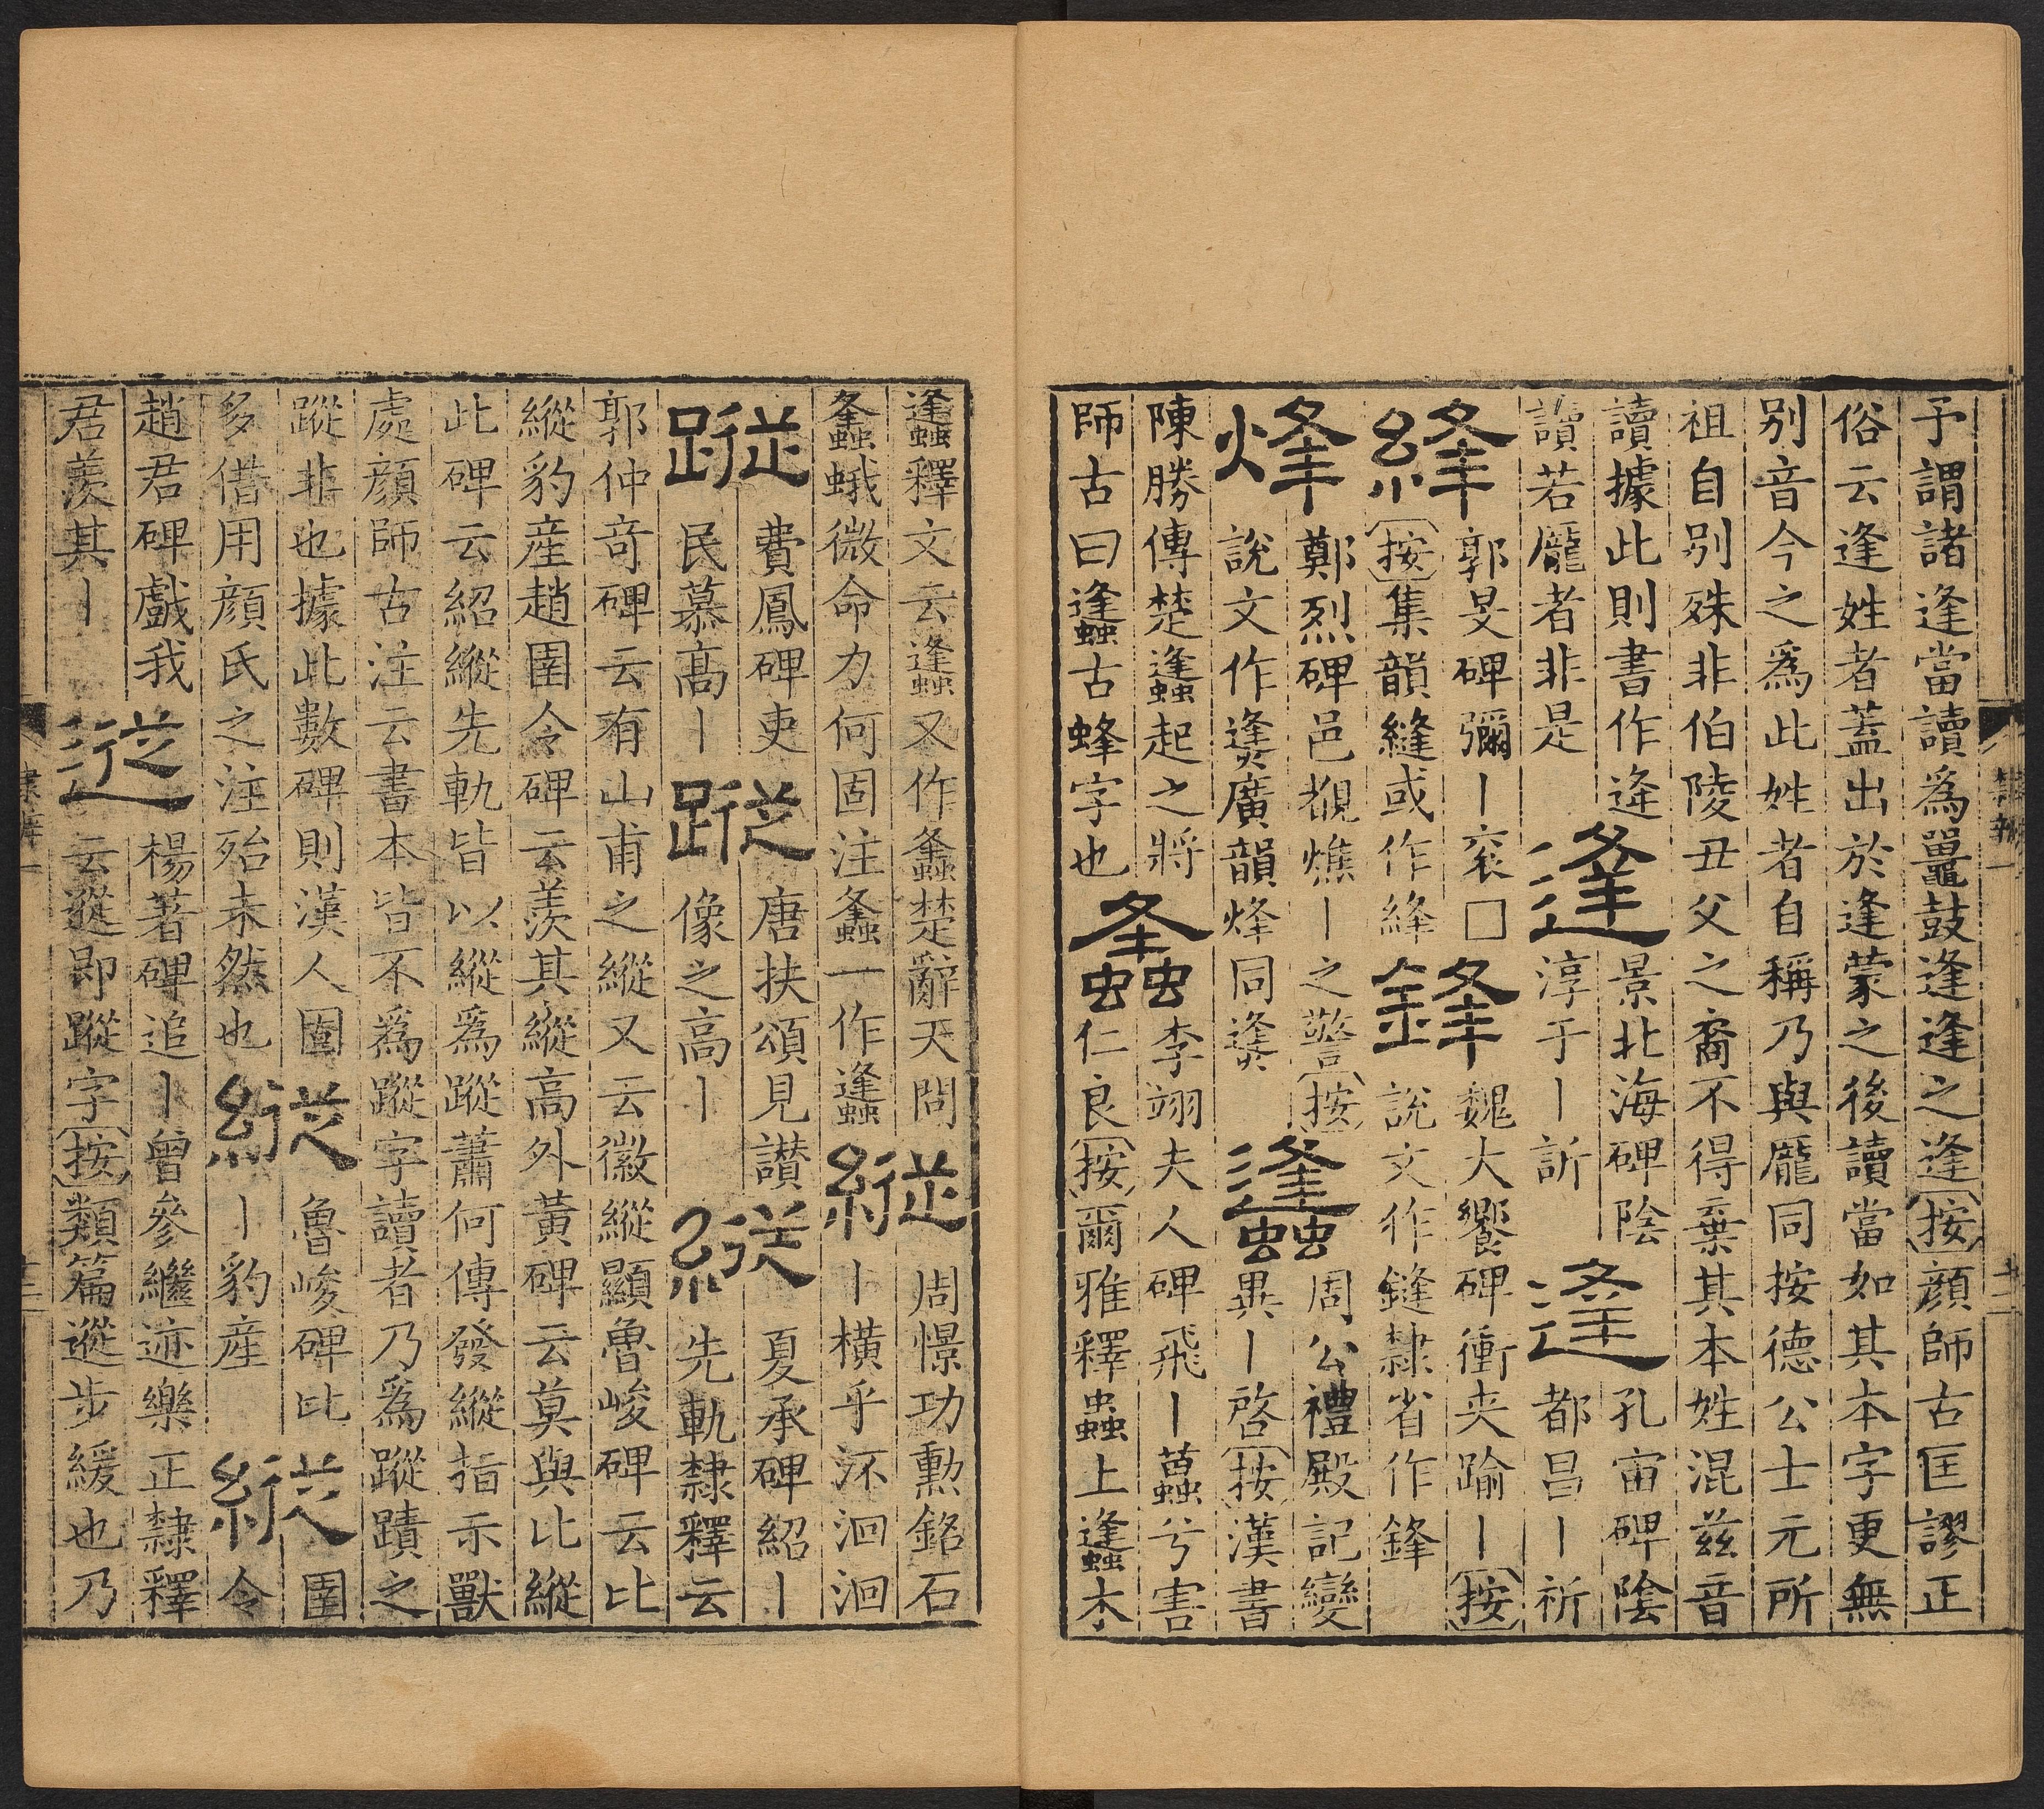 予謂諸逢當讀爲鼉鼓逢逢之逢按顏師古匡謬正
俗云逢姓者蓋出於逢蒙之後讀當如其本字更無
别音今之爲此姓者自稱乃與龐同按德公士元所
祖自别殊非伯陵丑父之裔不得棄其本姓混兹音
讀據此則書作逄
讀若龐者非是
逢
景北海碑陰
淳于丨訢
逢
孔宙碑陰
都昌丨祈
綘
郭旻碑彌丨袞□
按集韻縫或作綘
鋒
魏大饗碑衝夾踰丨按
說文作鏠隷省作鋒
烽
鄭烈碑邑覩燋丨之警按
說文作㷭廣韻烽同㷭
蠭
周公禮殿記變
異丨啓按漢書
陳勝傳楚蠭起之將
師古曰蠭古蜂字也
䗬
李翊夫人碑飛丨䖟兮害
仁良按爾雅釋蟲土蠭木
蠭釋文云蠭又作䗬楚辭天問
䗬蛾微命力何固注䗬一作蠭
縱
周憬功勳銘石
丨橫乎洄洄
蹤
費鳳碑吏
民慕高丨
蹤
唐扶頌見讃
像之高丨
縱
夏承碑紹丨
先軌隸釋云
郭仲奇碑云有山甫之縱又云徽縱顯魯峻碑云比
縱豹產趙圉令碑云羨其縱高外黃碑云莫與比縱
此碑云紹縱先軌皆以縱爲蹤蕭何傳發縱指示獸
處顏師古注云書本皆不爲蹤字讀者乃爲蹤蹟之
蹤非也據此數碑則漢人固
多借用顏氏之注殆未然也
縱
魯峻碑比
丨豹產
縱
圉
令
趙君碑戲我
君羨其丨
䢨
楊著碑追丨曾參繼迹樂正隸釋
云䢨即蹤字按類篇䢨步緩也乃